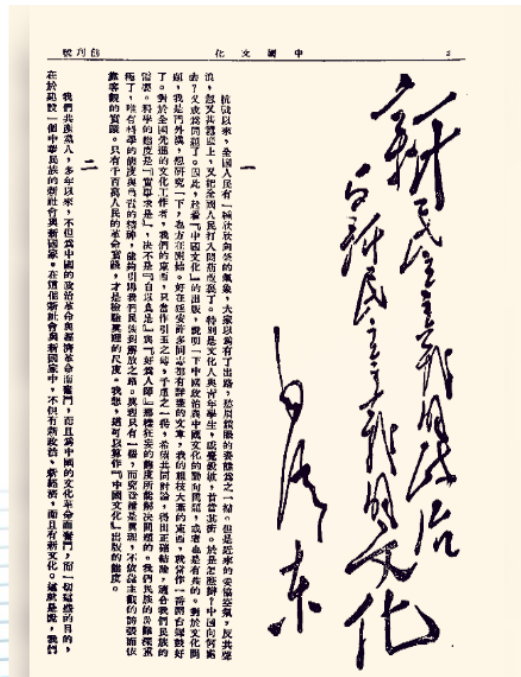 2
中國文化
創刊號
新民主主義的政治
与新民主主義的文化
毛澤東
一
抗戰以來，全國人民有一種欣欣向榮的氣象，大家以為有了出路，愁眉鎖眼的姿態為之一掃。但是近來的妥協空氣，反共聲
浪，忽又甚囂塵上，又把全國人民打入悶葫蘆裏了。特別是文化人與青年學生，感覺敏銳，首當其衝。於是怎麼辦？中國向何處
去？又成為問題了。因此，趁着『中國文化』的出版，說明一下中國政治與中國文化的動向問題，或者也是有益的。對於文化問
題，我是門外漢，想研究一下，也方在開始。好在延安許多同志都有詳盡的文章，我的粗枝大葉的東西，就當作一番開台鑼鼓好
了。對於全國先進的文化工作者，我們的東西，只當作引玉之磚，千慮之一得，希望共同討論，得出正確結論，適合我們民族的
需要。科學的態度是『實事求是』，決不是『自以為是』與『好為人師』那樣狂妄的態度所能解決問題的。我們民族的災難深重
極了，唯有科學的態度與負責的精神，能夠引導我們民族到解放之路。真理只有一個，而究竟誰是真理，不依靠主觀的誇張而依
靠客觀的實踐。只有千百萬人民的革命實踐，才是檢驗真理的尺度。我想，這可以算作『中國文化』出版的態度。
二
我們共產黨人，多年以來，不但為中國的政治革命與經濟革命而奮鬥，而且為中國的文化革命而奮鬥，而一切這些的目的，
在於建設一個中華民族的新社會與新國家。在這個新社會與新國家中，不但有新政治、新經濟，而且有新文化。這就是說，我們